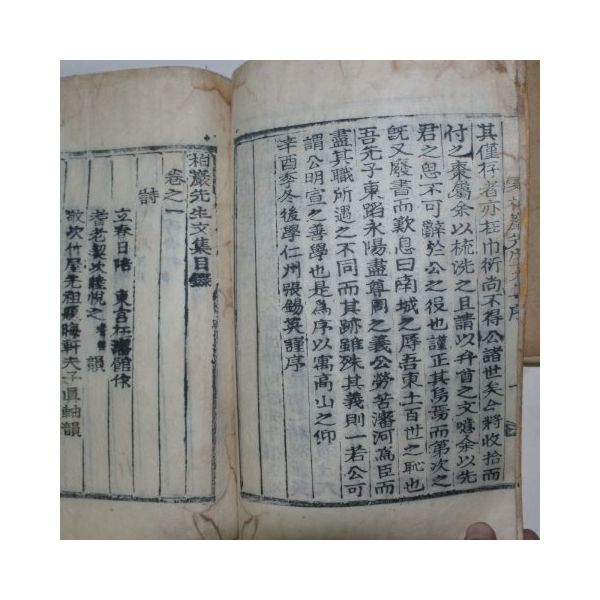 其僅存者亦在巾衍尚不得公諸世矣今將收拾而
付之棗屬余以梳洗之且請以弁首之文噫余以先
君之思不可辭於公之役也謹正其舄焉而第次之
旣又廢書而歎息曰南城之辱吾東土百世之恥也
吾先子東蹈永陽盡尊周之義公勞苦瀋河爲臣而
盡其職所遇之不同而其跡雖殊其義則一若公可
謂公明宣之善學也是爲序以寓高山之仰
辛酉季冬後學仁州張錫英謹序
柏巖先生文集目錄
卷之一
詩
立春日陪東宮在瀋館作
耆老契次睦悅之韻
敬次竹屋先祖晦軒夫子眞軸韻